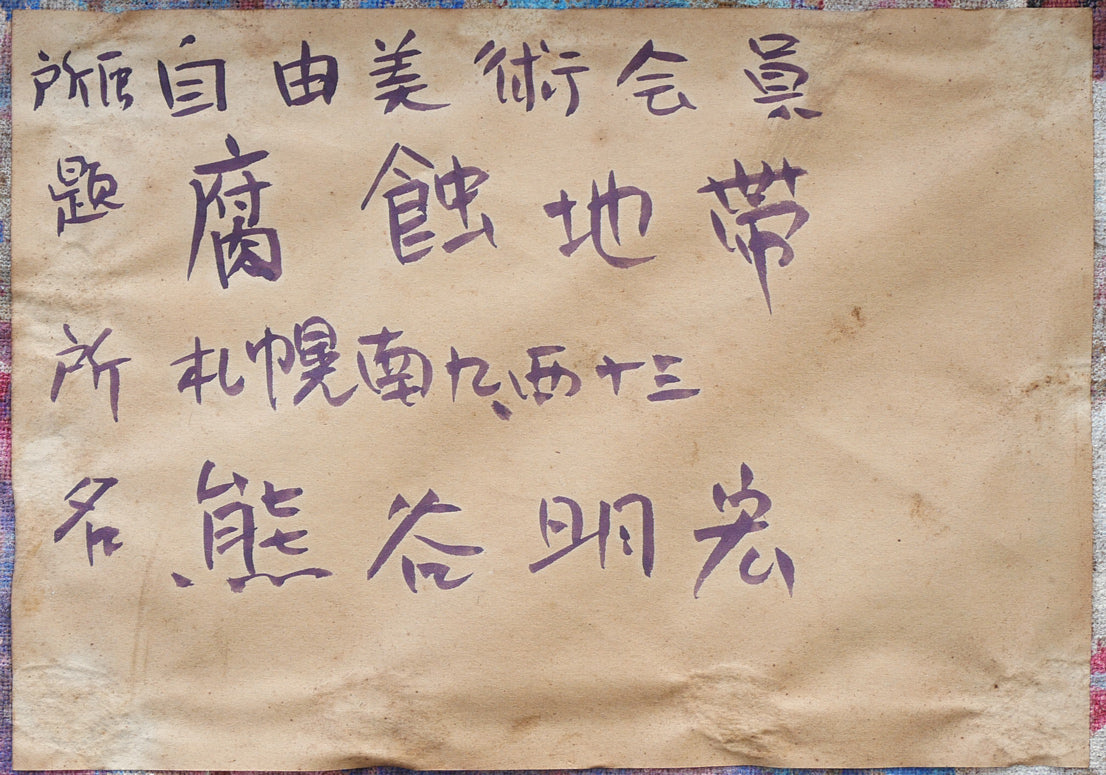 所属 自由美術会員
題 腐蝕地帯
所 札幌南九、西十三
名 熊谷明宏